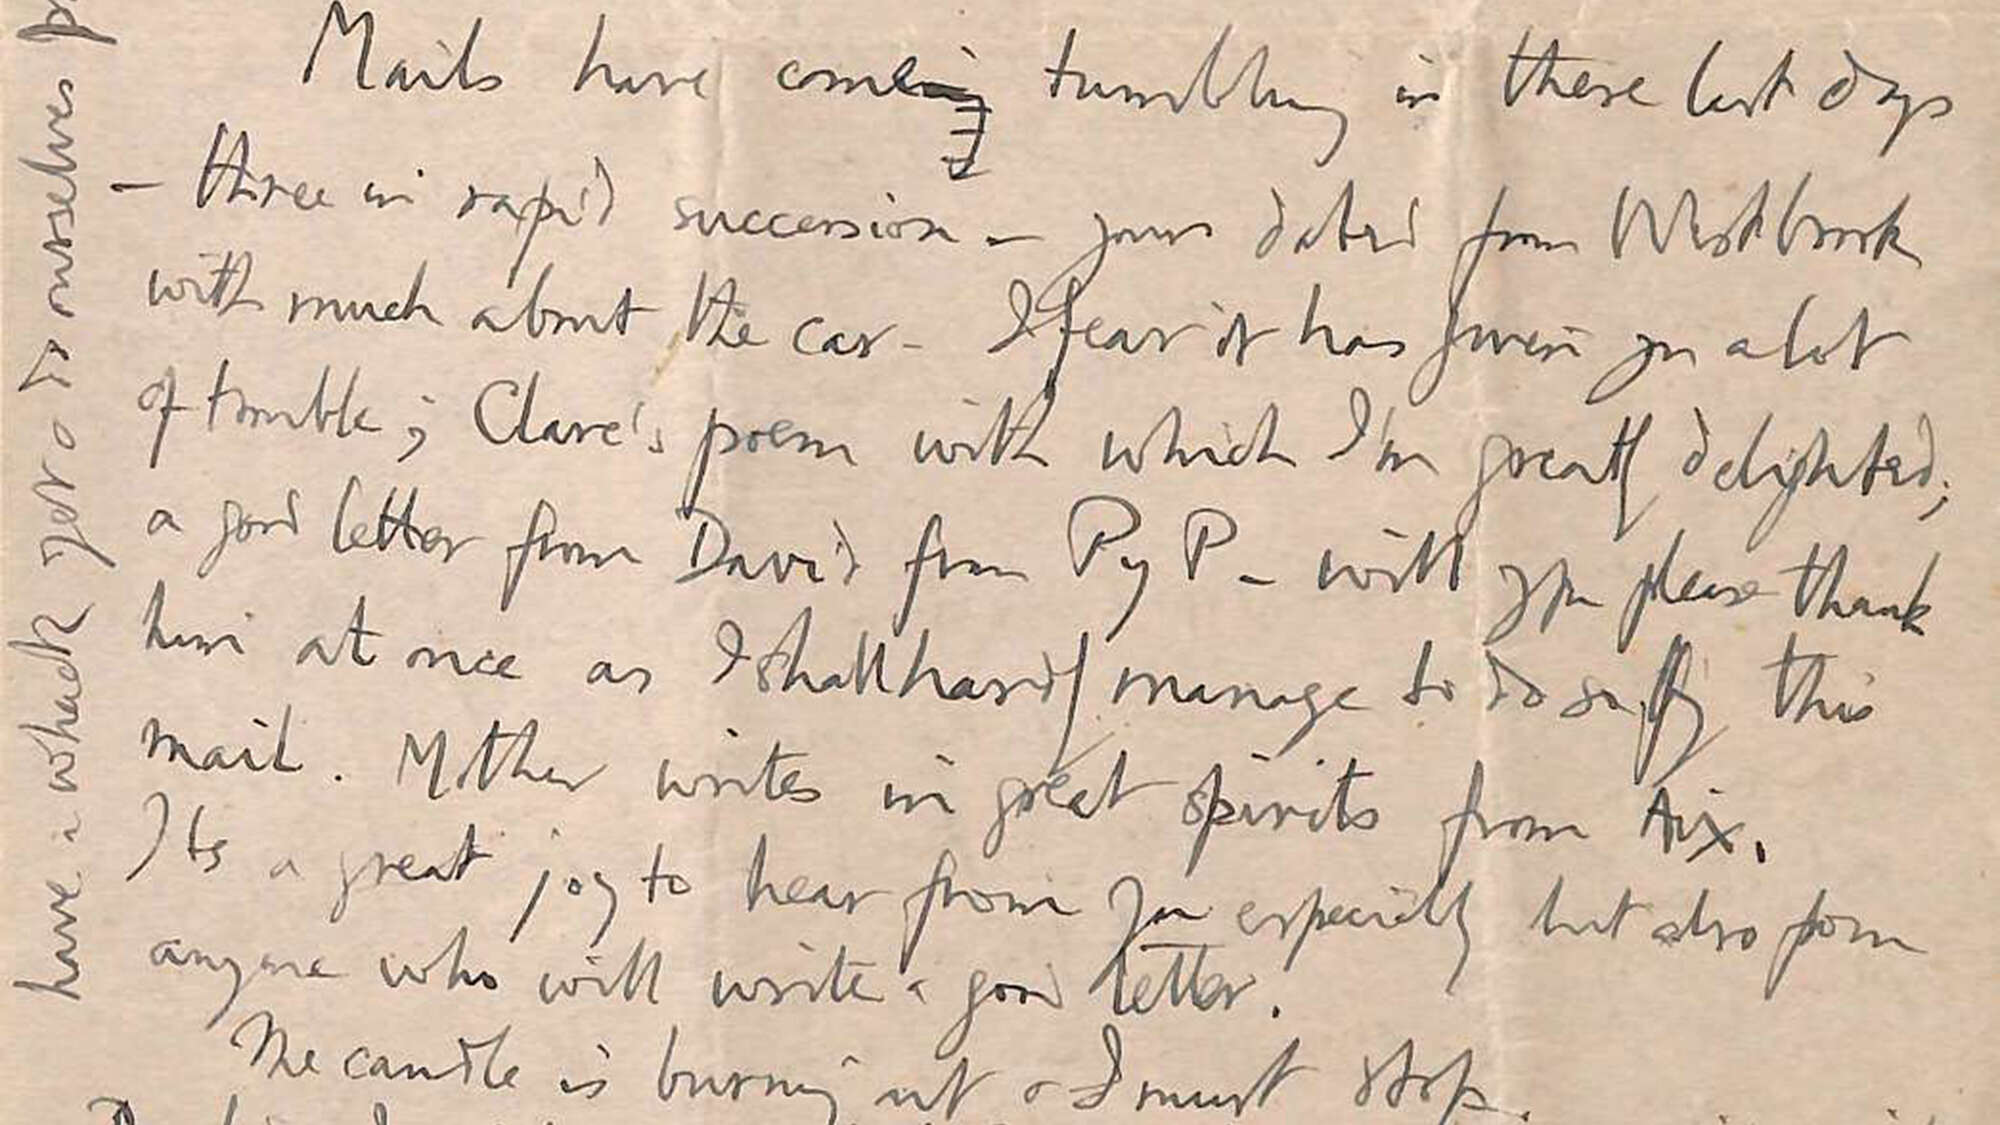 Mails have come tumbling in these last days
- three in rapid succession - yours dated from Westbrook
with much about the car - I fear it has given you a lot
of trouble; Clare's poem with which I'm greatly delighted;
a good letter from David from PyP - will you please thank
him at once as I shall hardly manage to do so by this
mail. Mother writes in great spirits from Aix.
Its a great joy to hear from you especially but also from
anyone who will write a good letter.
The candle is burning out & I must stop.
have a whack yet & to ourselves